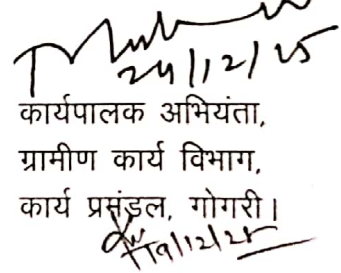 24/12/25
कार्यपालक अभियंता,
ग्रामीण कार्य विभाग,
कार्य प्रमंडल, गोगरी।
19/12/25